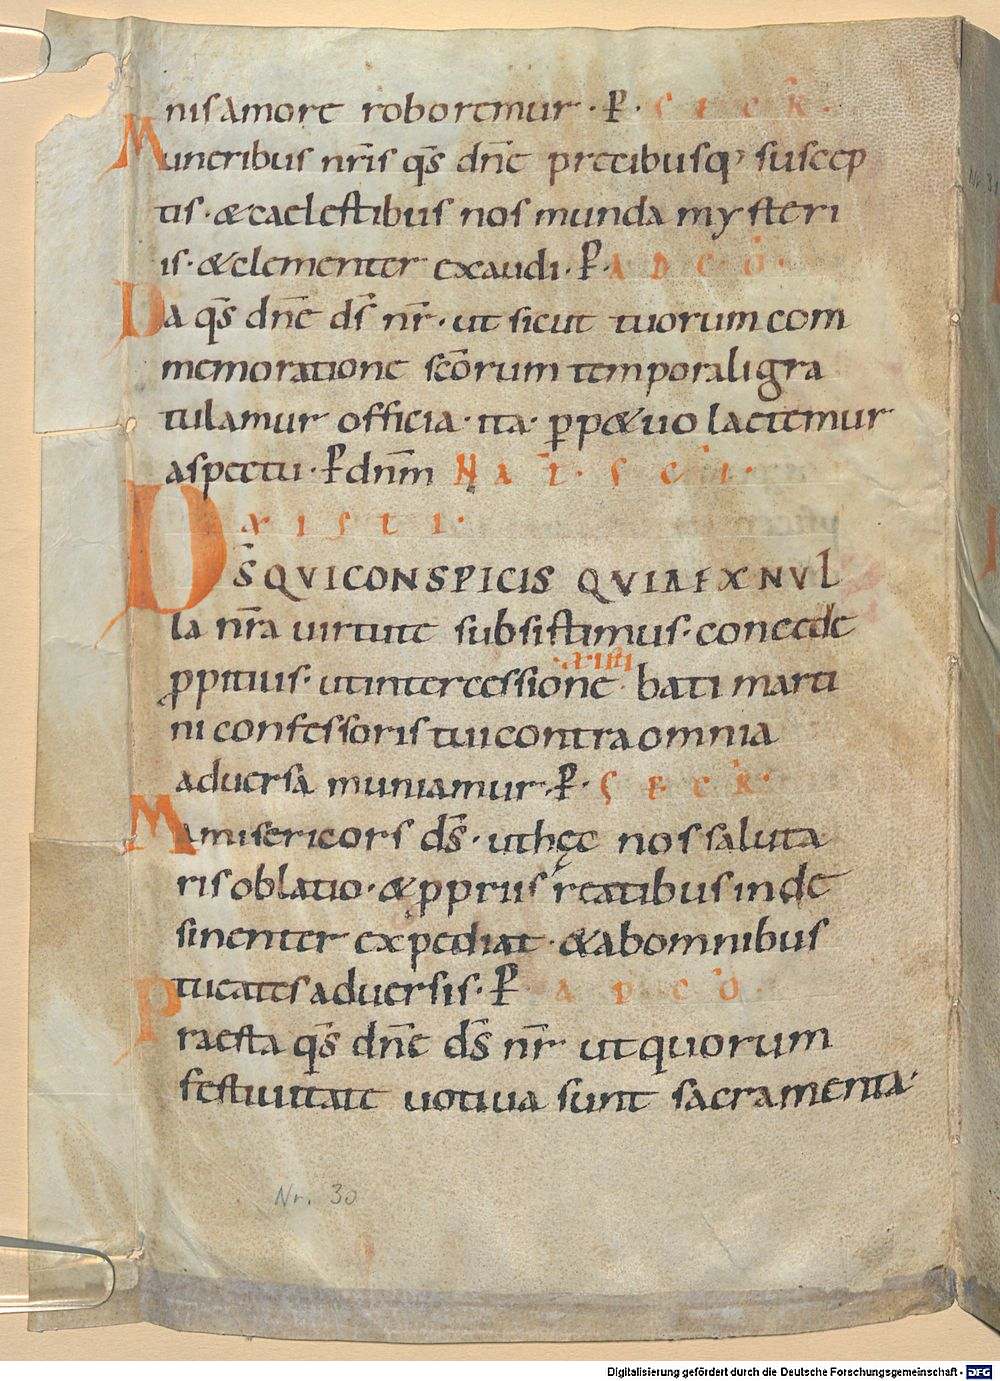 nis amore roboremur · P̶ · SECR̄ ·
Muneribus nr̄is qs̄ dn̄e precibusq; suscep
tis · & caelestibus nos munda mysteri
is · & clementer exaudi · P̶ · AD CŌ ·
Da qs̄ dn̄e ds̄ nr̄ · ut sicut tuorum com
memoratione sc̄orum temporali gra
tulamur officia · ita · p̱p&uo laetemur
aspectu · P̶ dn̄m NAT̄ · SC̄I ·
XISTI ·
DS̄ QVI CONSPICIS QVIA EX NVL
la nr̄a uirtute subsistimus · concede
ꝓpitius · ut intercessione · bati marti
·xisti
ni confessoris tui contra omnia
aduersa muniamur · P̶ · SECR̄ ·
Ma misericors ds̄ · ut hęc nos saluta
ris oblatio · & ꝓpriis reatibus inde
sinenter expediat · & ab omnibus
tueates aduersis · P̶ AD CŌ ·
Praesta qs̄ dn̄e ds̄ nr̄ ut quorum
festiuitate uotiua sunt sacramenta ·
Nr. 30
Digitalisierung gefördert durch die Deutsche Forschungsgemeinschaft - DFG